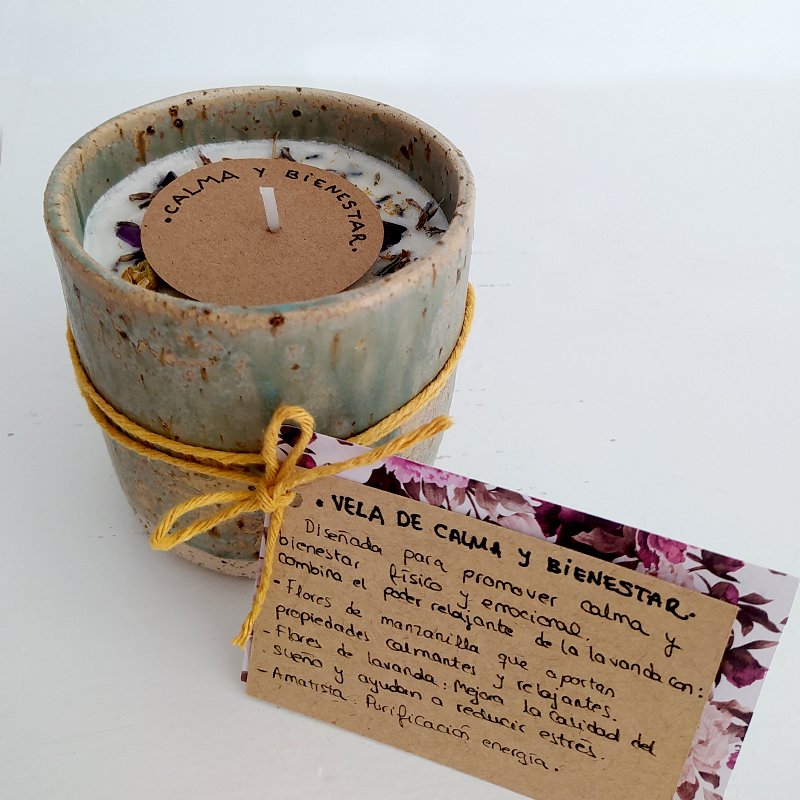 .CALMA Y BIENESTAR.
. VELA DE CALMA Y BIENESTAR.
Diseñada para promover calma y
bienestar físico y emocional.
combina el poder relajante de la lavanda con:
- Flores de manzanilla que aportan
propiedades calmantes y relajantes.
- Flores de lavanda: Mejora la calidad del
sueño y ayudan a reducir estrés.
- Amatista: Purificación energía.